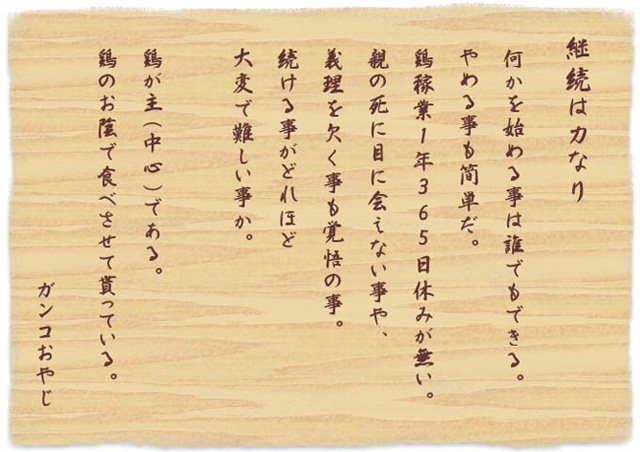 継続は力なり
何かを始める事は誰でもできる。
やめる事も簡単だ。
鶏稼業1年365日休みが無い。
親の死に目に会えない事や、
義理を欠く事も覚悟の事。
続ける事がどれほど
大変で難しい事か。
鶏が主(中心)である。
鶏のお陰で食べさせて貰っている。
ガンコおやじ